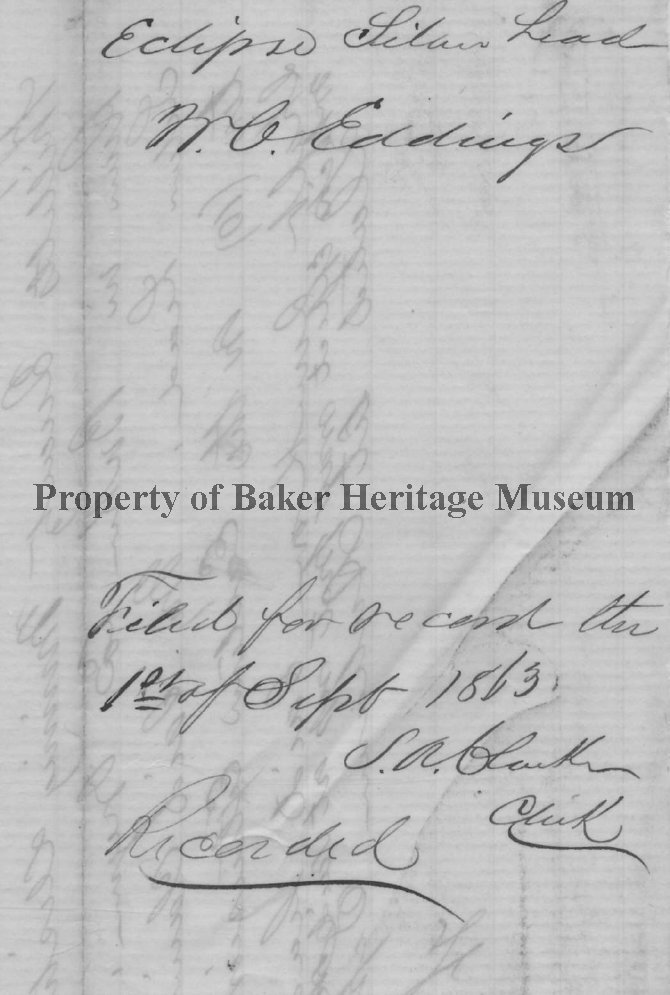 Eclipse Silver Lead
W. C. Eddings
Property of Baker Heritage Museum
Filed for record the
1st of Sept 1863
S. A. Clarke
Clerk
Recorded